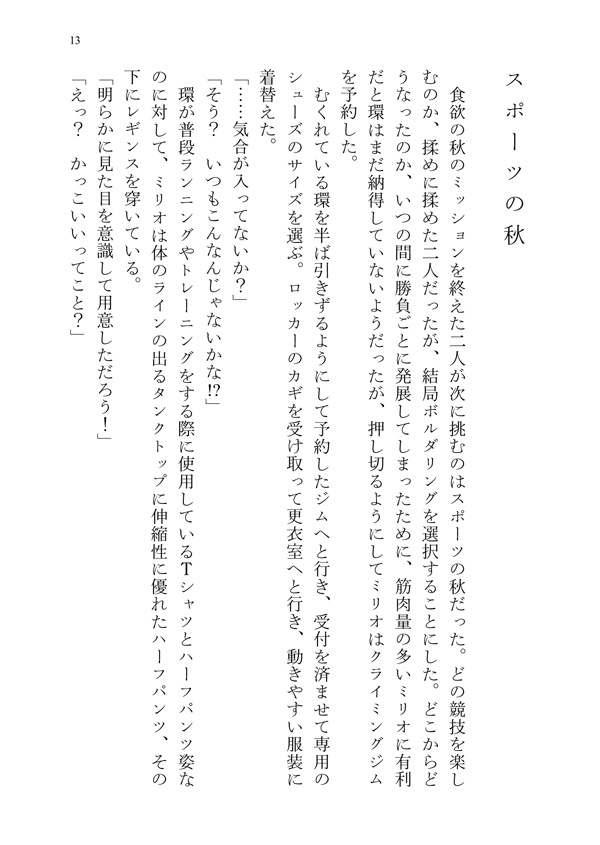 13
スポーツの秋
　食欲の秋のミッションを終えた二人が次に挑むのはスポーツの秋だった。どの競技を楽し
むのか、揉めに揉めた二人だったが、結局ボルダリングを選択することにした。どこからど
うなったのか、いつの間に勝負ごとに発展してしまったために、筋肉量の多いミリオに有利
だと環はまだ納得していないようだったが、押し切るようにしてミリオはクライミングジム
を予約した。
　むくれている環を半ば引きずるようにして予約したジムへと行き、受付を済ませて専用の
シューズのサイズを選ぶ。ロッカーのカギを受け取って更衣室へと行き、動きやすい服装に
着替えた。
「……気合が入ってないか？」
「そう？　いつもこんなんじゃないかな!?」
　環が普段ランニングやトレーニングをする際に使用しているTシャツとハーフパンツ姿な
のに対して、ミリオは体のラインの出るタンクトップに伸縮性に優れたハーフパンツ、その
下にレギンスを穿いている。
「明らかに見た目を意識して用意しただろう！」
「えっ？　かっこいいってこと？」